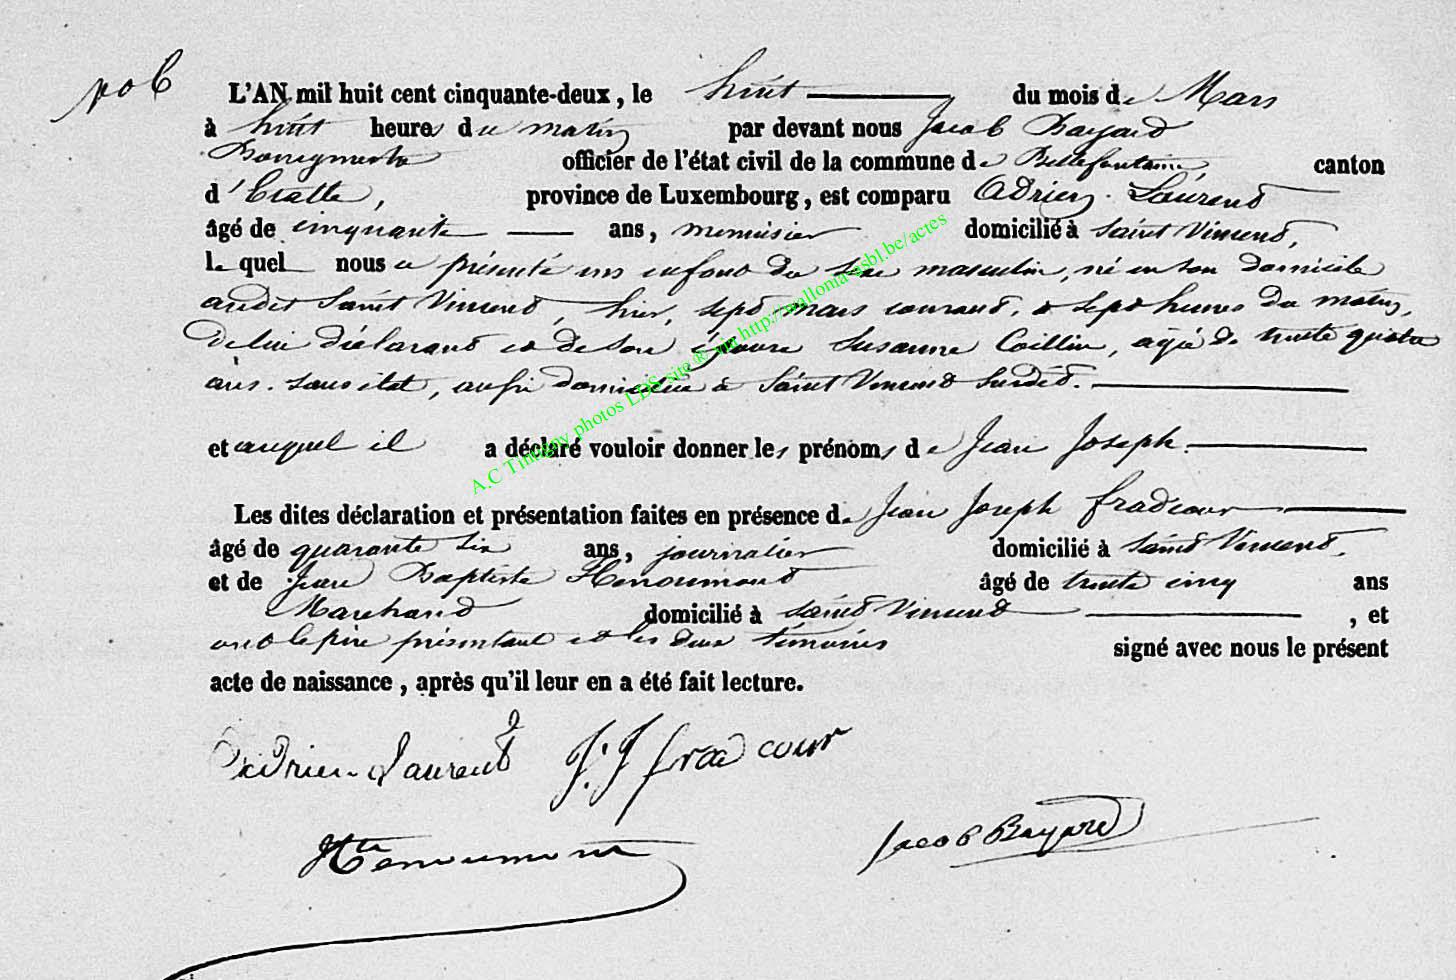 no 6
L'AN mil huit cent cinquante-deux, le huit du mois de Mars
à huit heures du matin par devant nous Jacob Bayard
Bourgmestre officier de l'état civil de la commune de Bellefontaine, canton
d'Etalle, province de Luxembourg, est comparu Adrien Laurent
âgé de cinquante ans, menuisier domicilié à Saint Vincent,
lequel nous a présenté un enfant du sexe masculin, né en son domicile
audit Saint Vincent, hier, sept mars courant, à sept heures du matin,
de lui déclarant et de son épouse Susanne Collin, agée de trente quatre
ans. sans état, aussi domiciliée à Saint Vincent susdit.
et auquel il a déclaré vouloir donner les prénoms de Jean Joseph.
Les dites déclaration et présentation faites en présence de Jean Joseph fradcour
âgé de quarante six ans, journalier domicilié à Saint Vincent.
et de Jean Baptiste Henoumont âgé de trente cinq ans
Marchand domicilié à Saint Vincent, et
ont le père présentant et les deux témoins signé avec nous le présent
acte de naissance, après qu'il leur en a été fait lecture.
Adrien Laurent J. J fradcour
Henoumont Jacob Bayard
A.C Tintigny photos LDS site ® via http://mallonia-asbl.be/actes